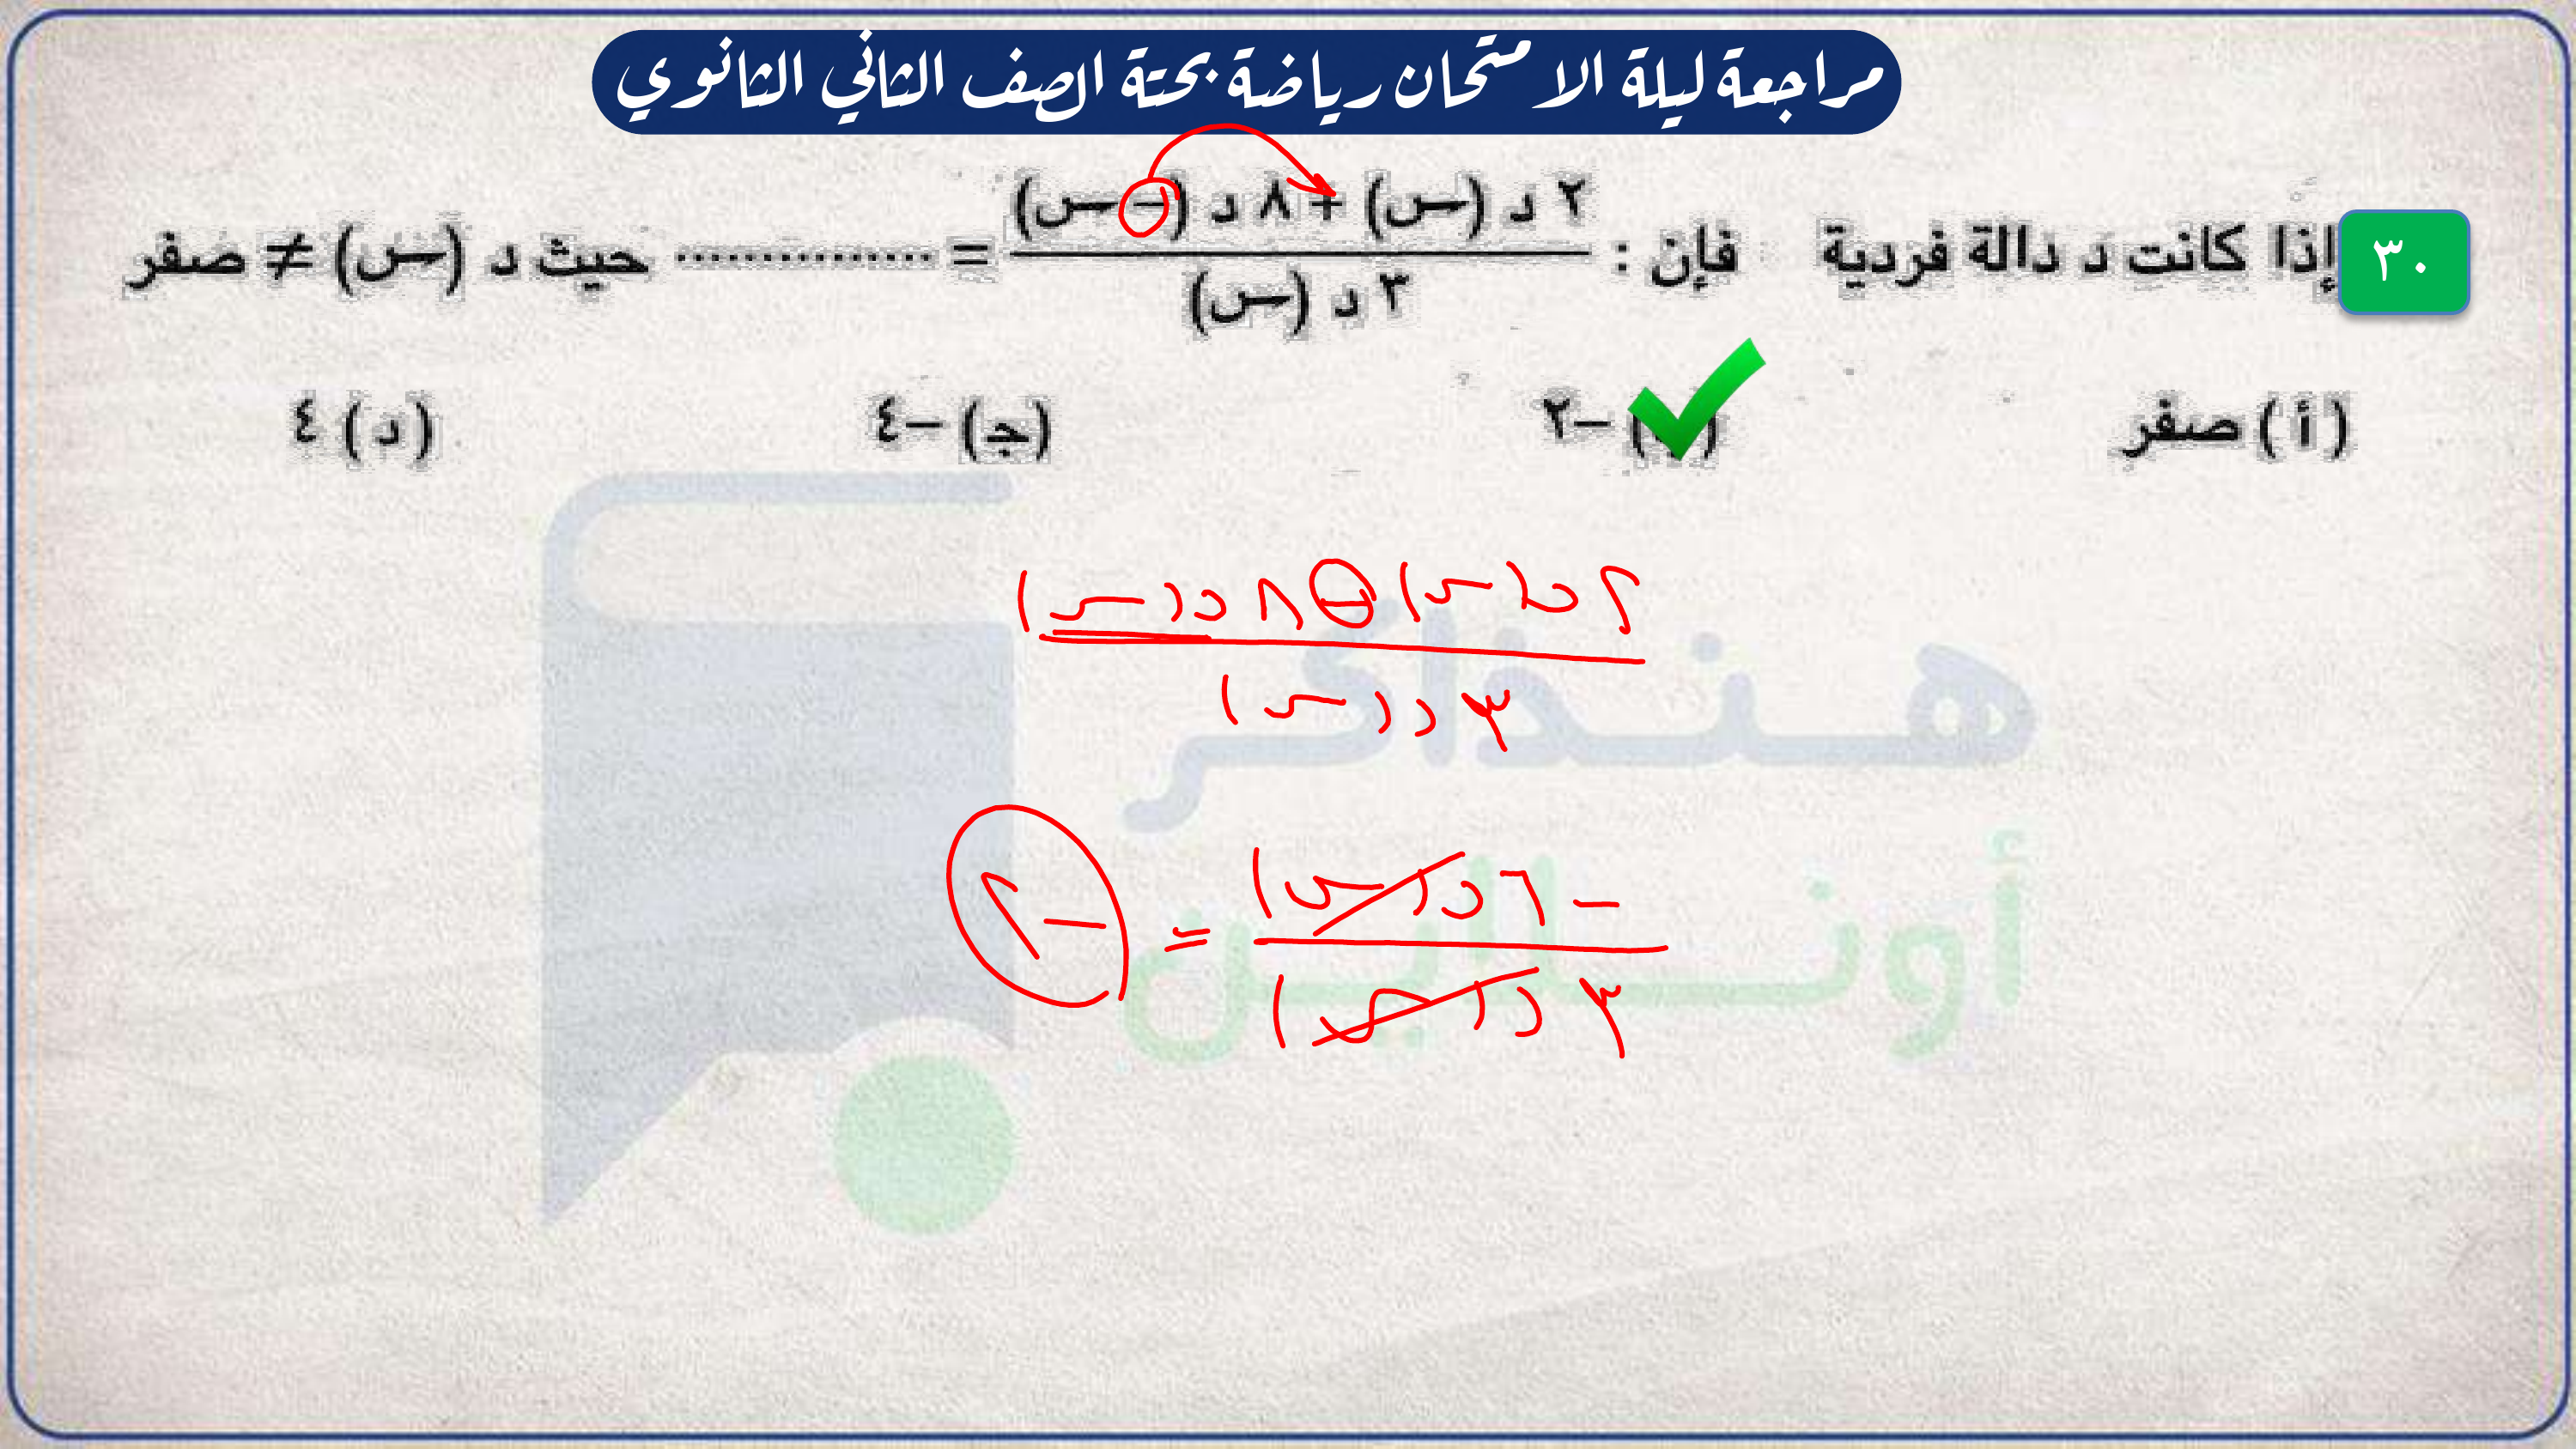 مراجعة ليلة الامتحان رياضة بحتة الصف الثاني الثانوي
٣٠ إذا كانت د دالة فردية فإن : (٢ د (س) + ٨ د (− س)) / (٣ د (س)) = ............... حيث د (س) ≠ صفر
(أ) صفر
−٢
(جـ) −٤
(د) ٤
٢ د(س) − ٨ د(س)
٣ د(س)
− ٦ د(س) / ٣ د(س) = −٢
هنذاكر
أونلاين